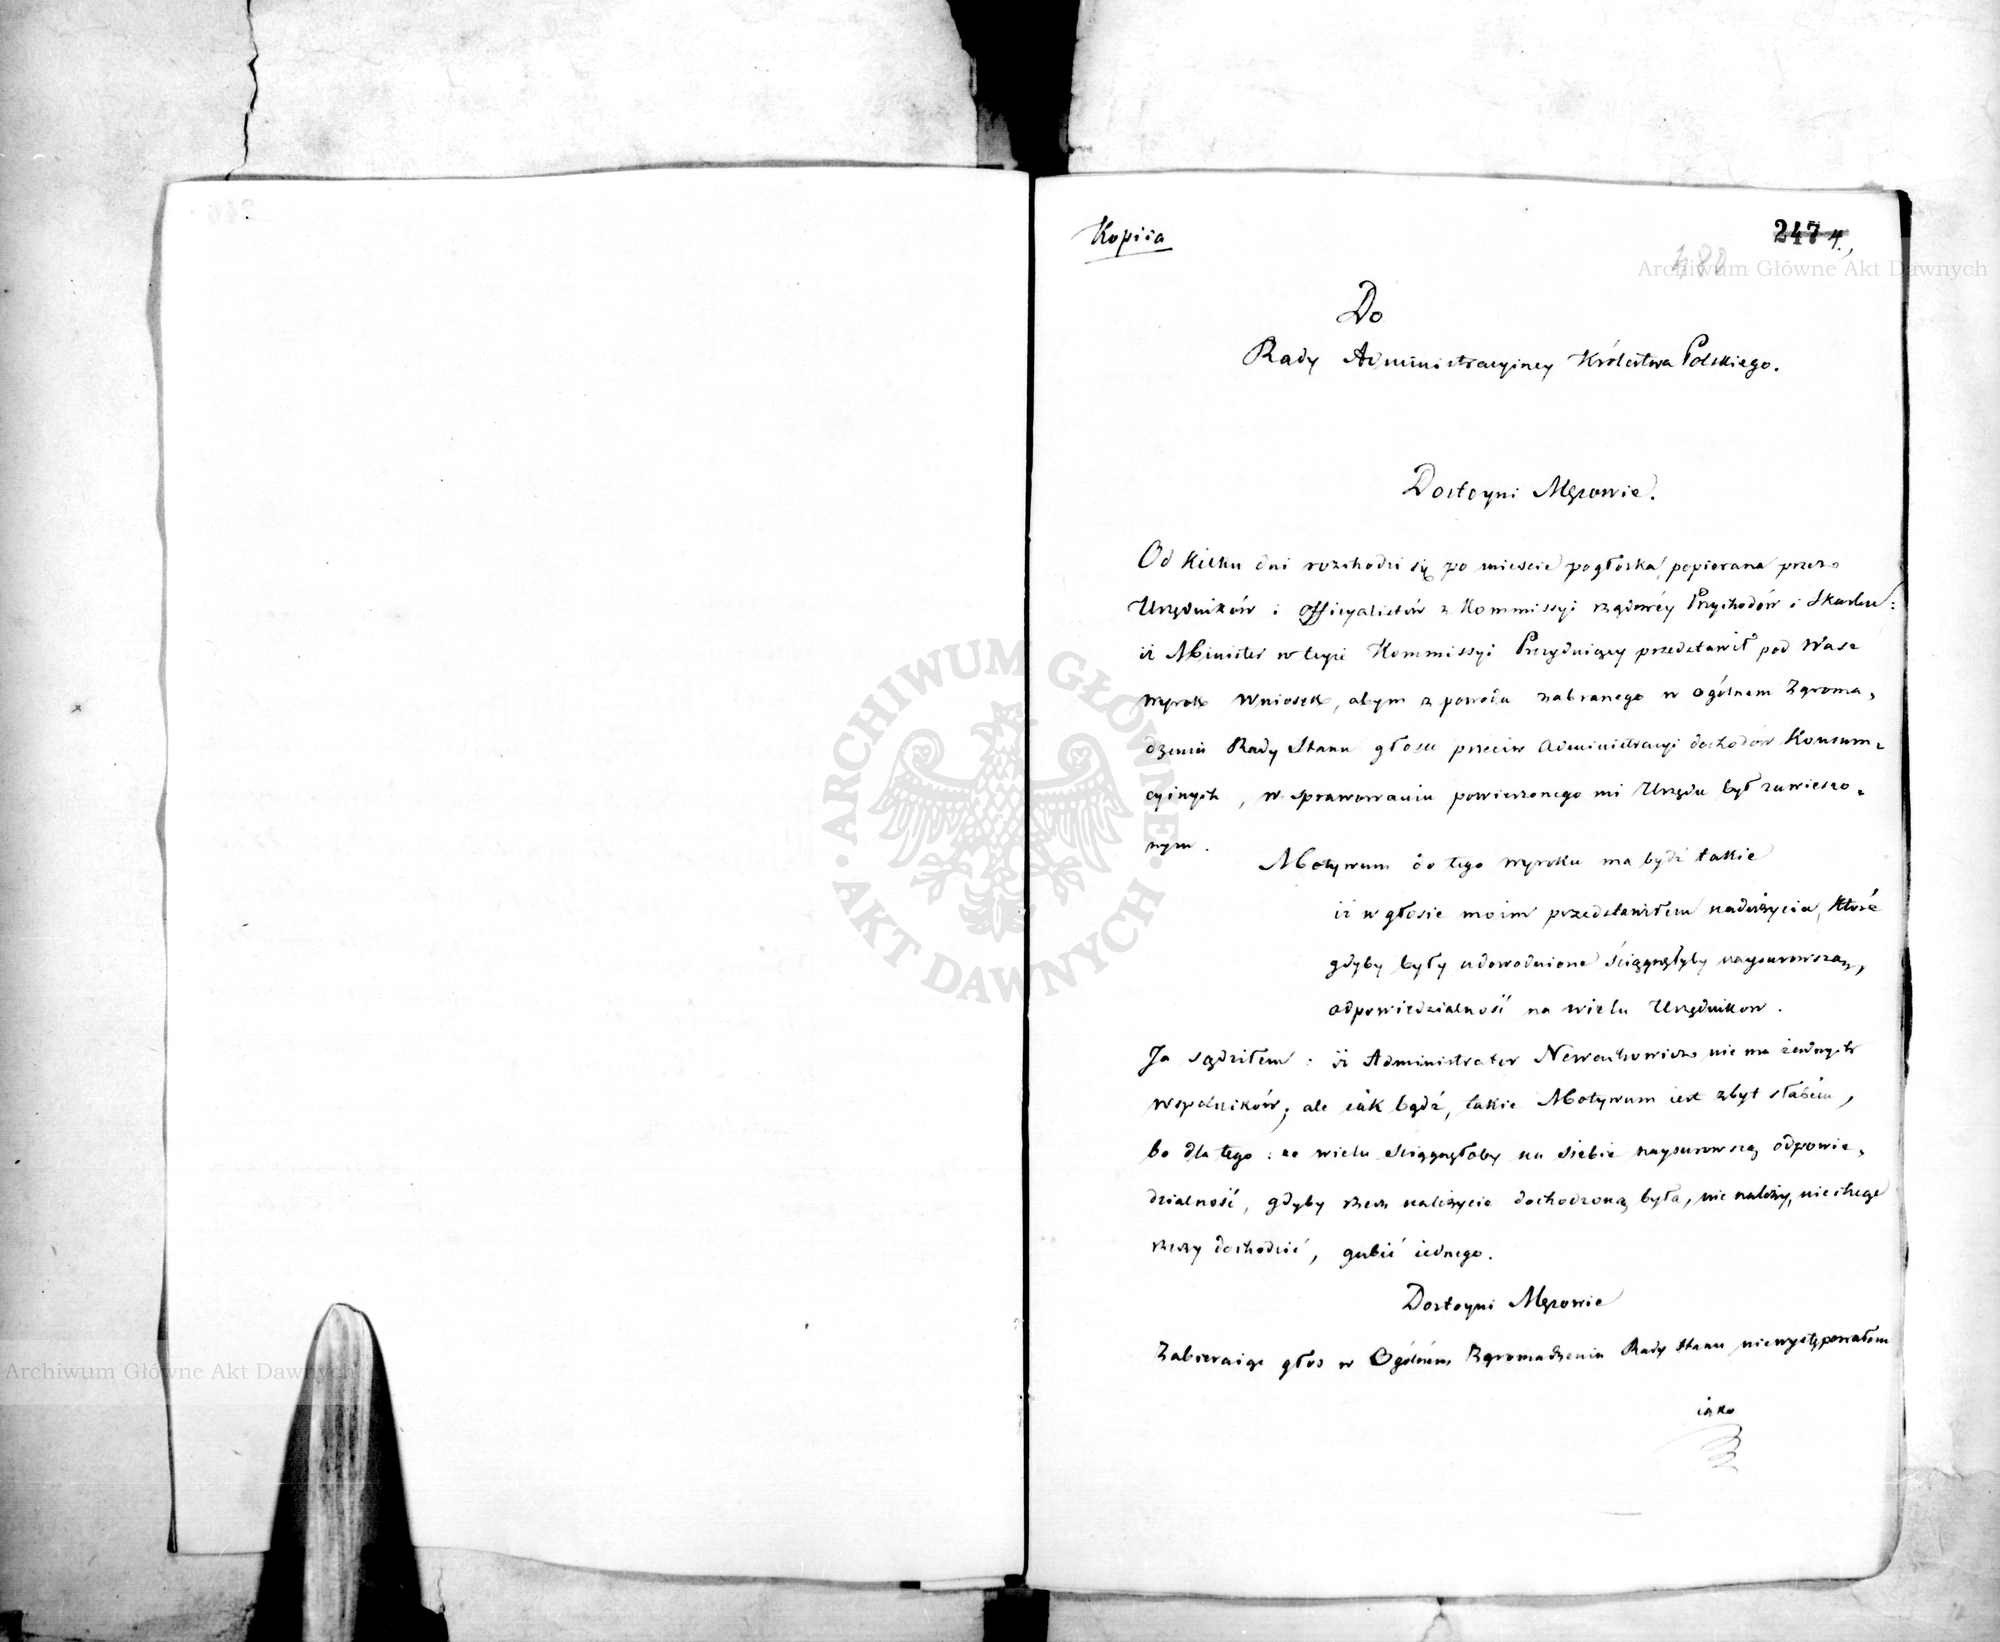 Kopiia
247 4.,
480
Do
Rady Administracyiney Królestwa Polskiego.
Dostoyni Mężowie.
Od kilku dni rozchodzi się po mieście pogłoska, popierana przez
Urzędników i officyalistów z Kommissyi rządowéy Przychodów i Skarbu:
iż Minister w teyże Kommissyi Prezyduiący przedstawił pod Wasz
wyrok wniosek, abym z powodu zabranego w ogólnem Zgroma-
dzeniu Rady Stanu głosu przeciw Administracyi dochodów Konsum-
cyinych, w sprawowaniu powierzonego mi Urzędu był zawieszo-
nym.
Motywum do tego wyroku ma bydź takie
iż w głosie moim przedstawiłem nadużycia, które
gdyby były udowodnione ściągnęłyby naysurowszą,
odpowiedzialność na wielu Urzędnikow.
Ja sądziłem: iż Administrator Newachowicz nie ma żadnych
wspólników; ale iak bądź, takie Motywum iest zbyt słabém,
bo dla tego: że wielu ściągnęłoby na siebie naysurowszą odpowie-
dzialność, gdyby rzecz należycie dochodzoną była, nie należy, niechcąc
rzeczy dochodzić, gubić iednego.
Dostoyni Mężowie
Zabieraiąc głos w Ogólném Zgromadzeniu Rady Stanu niewystępowałem
iako
Archiwum Główne Akt Dawnych
Archiwum Główne Akt Dawnych
ARCHIWUM GŁÓWNE AKT DAWNYCH